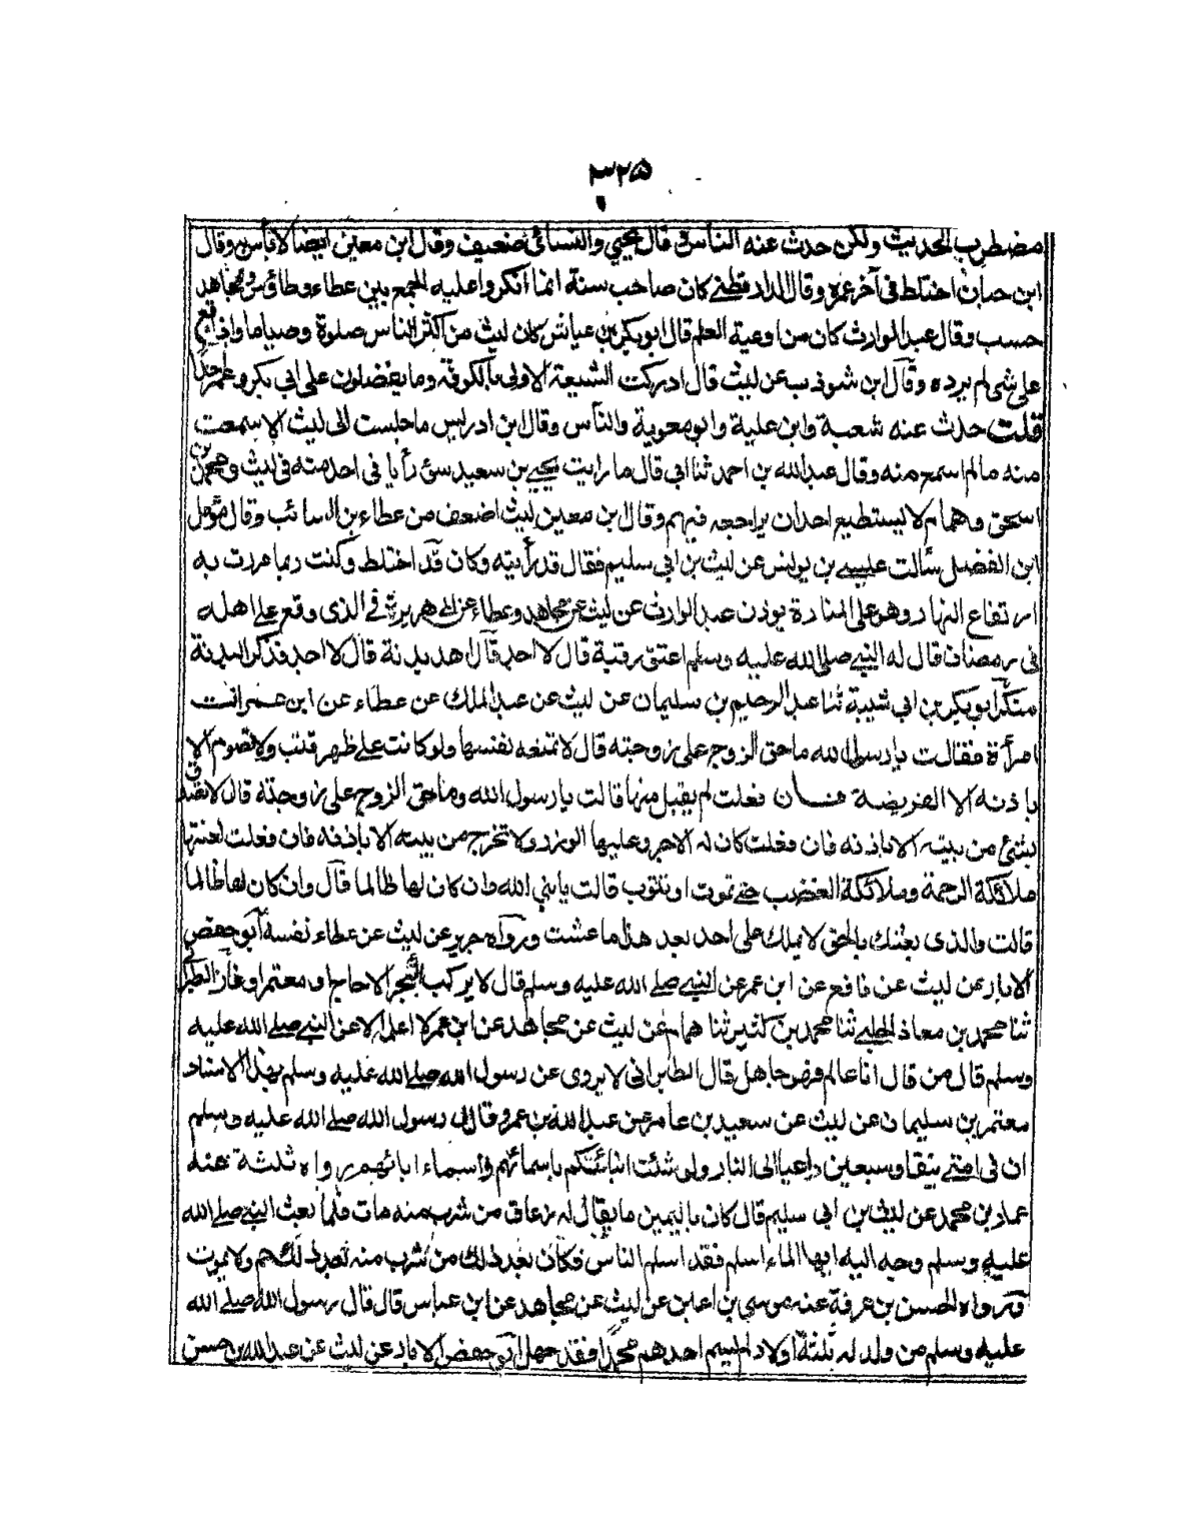 ٣٢٥
مضطرب الحديث ولكن حدث عنه الناس قال يحيى والنسائى ضعيف وقال ابن معين ايضا لا بأس به وقال
ابن حبان اختلط فى آخر عمره وقال الدارقطنے كان صاحب سنة انما انكروا عليه الجمع بين عطاء وطاؤس ومجاهد
حسب وقال عبد الوارث كان من اوعية العلم قال ابو بكر بن عياش كان ليث من اكثر الناس صلوة وصياما واذا وقع
على شئ لم يرده وقال ابن شوذب عن ليث قال ادركت الشيعة الاولى بالكوفة وما يفضلون على ابى بكر وعمر احدا
قلت حدث عنه شعبة وابن علية وابو معوية والناس وقال ابن ادريس ما جلست الى ليث الا سمعت
منه مالم اسمع منه وقال عبد الله بن احمد ثنا ابى قال ما رايت يحيے بن سعيد سئ رأيا فى احد منه فى ليث ومحمد بن
اسحق وهمام لا يستطيع احد ان يراجعه فيهم وقال ابن معين ليث اضعف من عطاء بن السائب وقال مؤمل
ابن الفضل سألت عليسے بن يونس عن ليث بن ابى سليم فقال قد رأيته وكان قد اختلط وكنت ربما مررت به
ارتفاع النهار وهو على المنارة يوذن عبد الوارث عن ليث عن مجاهد وعطاء عن ابى هريرة فى الذى وقع على اهله
فى رمضان قال له النبے صلى الله عليه وسلم اعتق رقبة قال لا اجد قال اهد بدنة قال لا اجد فذكر البدنة
منكر ابو بكر بن ابى شيبة ثنا عبد الرحيم بن سليمان عن ليث عن عبد الملك عن عطاء عن ابن عمر اتت
امرأة فقالت يا رسول الله ما حق الزوج على زوجته قال لا تمنعه نفسها ولو كانت على ظهر قتب ولا تصوم الا
باذنه الا الفريضة فان فعلت لم يقبل منها قالت يا رسول الله وما حق الزوج على زوجته قال لا تصدق
بشئ من بيته الا باذنه فان فعلت كان له الاجر وعليها الوزر ولا تخرج من بيته الا باذنه فان فعلت لعنتها
ملائكة الرحمة وملائكة الغضب حتے تموت او تتوب قالت يا نبي الله وان كان لها ظالما قال وان كان لها ظالما
قالت والذى بعثك بالحق لا يملك على احد بعد هذا ما عشت ورواه جرير عن ليث عن عطاء نفسه ابو حفص
الابار عن ليث عن نافع عن ابن عمر عن النبے صلے الله عليه وسلم قال لا يركب البحر الا حاج ومعتمر او غاز الطبرانى
ثنا محمد بن معاذ الحلبے ثنا محمد بن كثير ثنا همام عن ليث عن مجاهد عن ابن عمر لا اعلمه الا عن النبے صلے الله عليه
وسلم قال من قال انا عالم فهو جاهل قال الطبرانى لا يروى عن رسول الله صلے الله عليه وسلم بهذا الاسناد
معتمر بن سليمان عن ليث عن سعيد بن عامر عن عبد الله بن عمر وقال رسول الله صلے الله عليه وسلم
ان فى امتے نيفا وسبعين داعيا الى النار ولو شئت انبائتكم باسمائهم واسماء ابائهم رواه ثلثة عنه
عمار بن محمد عن ليث بن ابى سليم قال كان باليمين ما يقال له زعاق من شرب منه مات فلما بعث النبے صلے الله
عليه وسلم وجه اليه ايها الماء اسلم فقد اسلم الناس فكان بعد ذلك من شرب منه ولا يموت
رواه الحسن بن عرفة عنه موسى بن اعين عن ليث عن مجاهد عن ابن عباس قال قال رسول الله صلے الله
عليه وسلم من ولد له ثلثة اولاد لم يسم احدهم محمدا فقد جهل ابو حفص الابار عن ليث عن عبد الله بن حسن